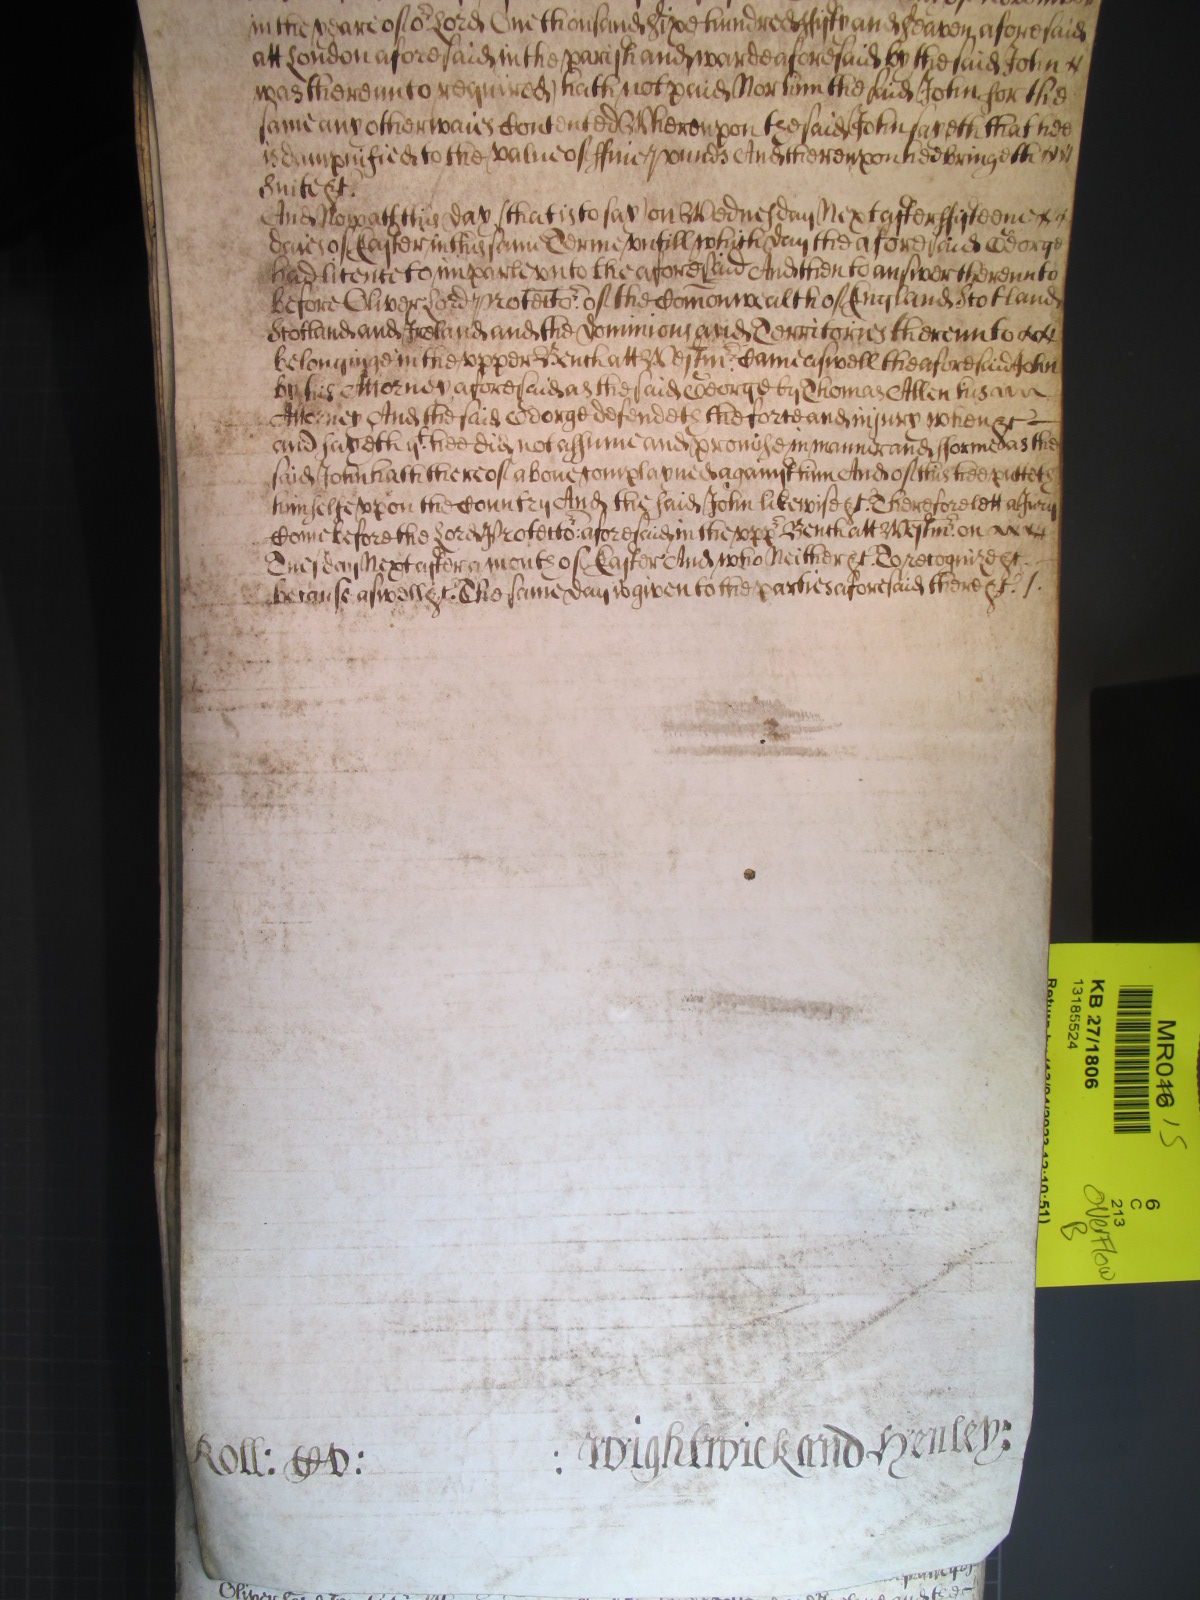 in the yeare of or Lord One thousand Sixe hundred ffifty and Seaven aforesaid
att London aforesaid in the parish and warde aforesaid by the said John
was thereunto required hath not paid Nor him the said John for the
same any otherwaies Contented Whereupon the said John sayeth that hee
is dampnified to the value of ffive pounds And thereupon hee bringeth
Suite &c.
And Now att this day that is to say on Wednesday Next after ffifteene
dayes of Easter in this same Terme untill which day the aforesaid George
had licence to imparle unto the aforesaid And then to answer thereunto
before Oliver Lord Protector of the Comonwealth of England Scotland
Scotland and Ireland and the Dominions and Territories thereunto
belonginge in the upper Bench att Westmr. Came aswell the aforesaid John
by his Attorney aforesaid as the said George by Thomas Allen his
Attorney And the said George defendeth the force and injury when &c
and sayeth yt hee did not assume and promise in manner and forme as the
said John hath thereof above complayned against him And of this hee putteth
himselfe upon the Country And the said John likewise &c. Therefore lett a Jury
Come before the Lord Protector aforesaid in the uppr Bench att Westmr. on
Tuesday Next after a moneth of Easter And who Neither &c. To recognize &c.
because aswell &c. The same day is given to the parties aforesaid there &c. /.
Roll:
: Wightwick and Henley:
MR016 15
KB 27/1806
13185524
6
C
213
Overflow
B
Return by (13/04/2023 12:10:51)
Oliver Lord